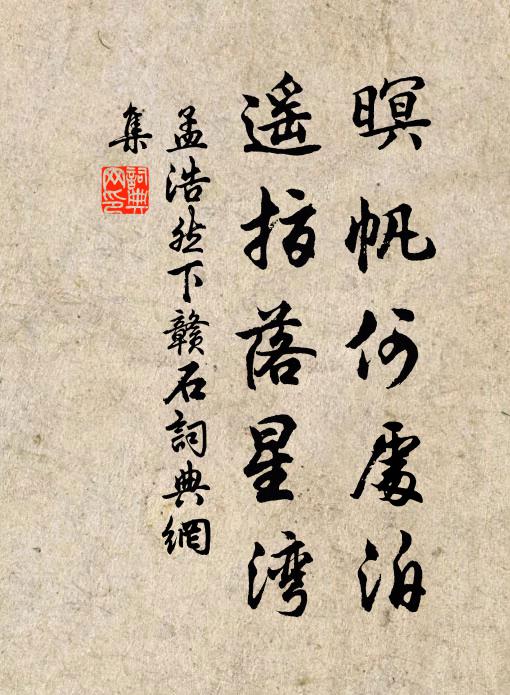 暝帆何處泊
遥指落星湾
孟浩然下贛石詞典網
集
詞典
网印